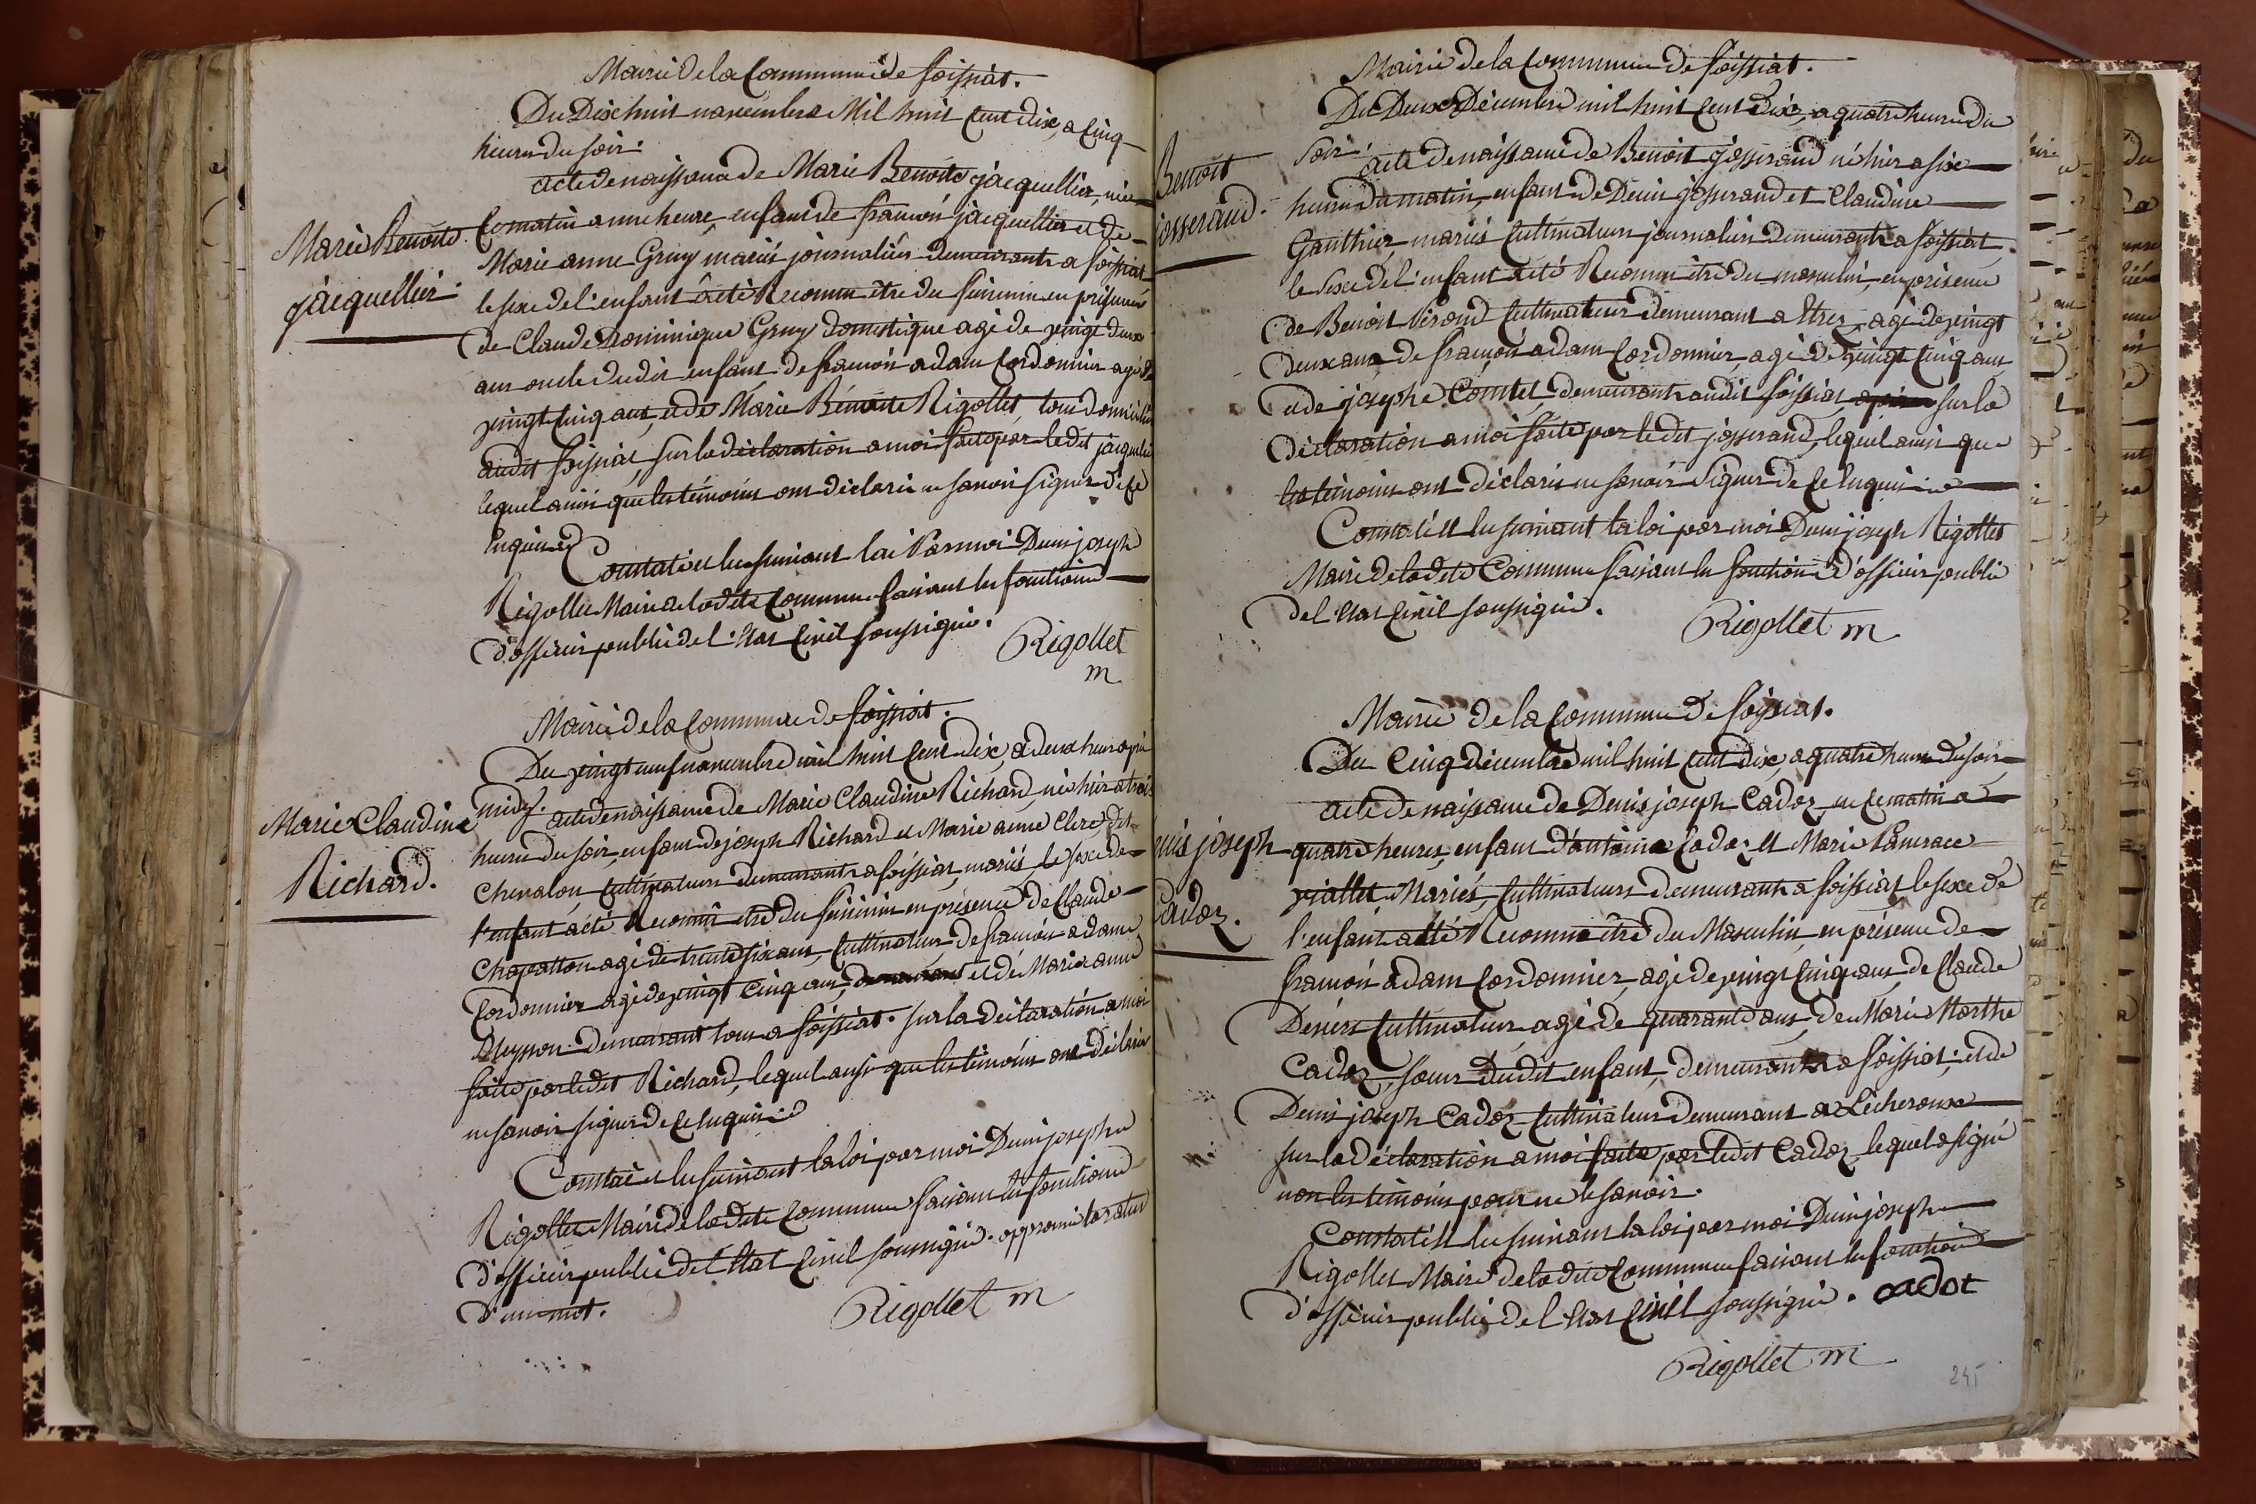 Mairie de la Commune de foissiat.
Du Dixhuit novembre Mil huit Cent dix, a Cinq
heures du soir.
acte de naissance de Marie Benoite jacquellier, née
Marie Benoite
jacquellier.
Ce matin a une heure, enfant de francois jacquellier et de
Marie anne Gruy mariés journaliers demeurants a foissiat
le sexe de l'enfant a été Reconnu être du feminin en présence
de Claude Dominique Gruy domestique agé de vingt deux
ans oncle dudit enfant de francois adam Cordonnier agé de
vingt Cinq ans, et de Marie Benoite Rigollet, tous domiciliés
audit foissiat, sur la déclaration a moi faite par le dit jacquellier
lequel ainsi que les témoins ont déclaré ne savoir signer de Ce
Enquis
Constaté et lu suivant la loi Par moi Denis joseph
Rigollet Maire de la dite Commune faisant les fonctions
d'officier public de l'Etat Civil soussigné.
Rigollet
m
Mairie de la Commune de foissiat.
Du vingt neuf novembre mil huit Cent dix, a deux heures après
midy.
Marie Claudine
Richard.
acte de naissance de Marie Claudine Richard née hier a trois
heures du soir, enfant de joseph Richard et Marie anne Clerc dit
Chevalon, Cultivateurs demeurants a foissiat, mariés, le sexe de
l'enfant a été Reconnu etre du feminin en présence de Claude
Chapatton agé de trente six ans, Cultivateur, de francois adam
Cordonnier agé de vingt Cinq ans, et de Marie anne
demeurant tous a foissiat. sur la déclaration a moi
faite par ledit Richard, lequel ainsi que les témoins ont déclaré
ne savoir signer de Ce Enquis
Constaté et lu suivant la loi par moi Denis joseph
Rigollet Maire de la dite Commune faisant les fonctions
d'officier public de l'Etat Civil soussigné. approuvé la rature
d'un mot.
Rigollet m
Mairie de la Commune de foissiat.
Du Deux Décembre mil huit Cent dix, a quatre heures du
soir.
Benoit
josserand.
acte de naissance de Benoit josserand né hier a six
heures du matin, enfant de Denis josserand et Claudine
Gauthier mariés Cultivateurs journaliers demeurants a foissiat,
le sexe de l'enfant a été Reconnu être du masculin, en présence
de Benoit Cultivateur demeurant a Etrez, agé de vingt
deux ans de francois adam Cordonnier, agé de vingt Cinq ans
et de josephe Comtet, demeurants audit foissiat sur la
déclaration a moi faite par le dit josserand, lequel ainsi que
les témoins ont déclarés ne savoir signer de Ce Enquis
Constaté et lu suivant la loi par moi Denis joseph Rigollet
Maire de la dite Commune faisant les fonctions d'officier public
de l'Etat Civil soussigné.
Rigollet m
Mairie de la Commune de foissiat.
Du Cinq décembre mil huit Cent dix, a quatre heures du soir
acte de naissance de Denis joseph Cadoz, né Ce matin a
nis joseph
Cadoz.
quatre heures, enfant d'antoine Cadoz et Marie Pancrace
viallet, Mariés, Cultivateurs demeurants a foissiat le sexe de
l'enfant a été Reconnu être du Masculin en présence de
francois adam Cordonnier, agé de vingt Cinq ans, de Claude
Cultivateur agé de quarante ans, de Marie Marthe
Cadoz, sœur dudit enfant, demeurants a foissiat; et de
Denis joseph Cadoz Cultivateur demeurant a Lécheroux
sur la déclaration a moi faite par ledit Cadoz lequel a signé
non les témoins pour ne le savoir.
Constaté et lu suivant la loi par moi Denis joseph
Rigollet Maire de la dite Commune faisant les fonctions
d'officier public de l'Etat Civil soussigné. cadot
Rigollet m